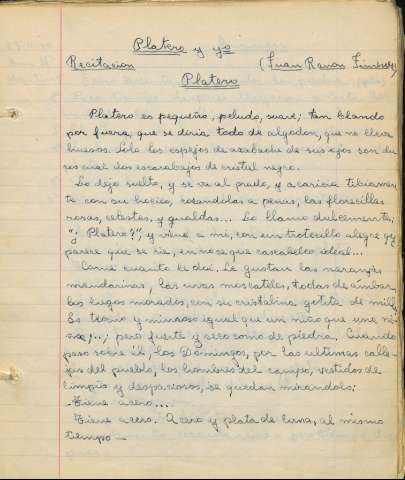 Platero y yo
Recitacion (Juan Ramon Jimenez)
Platero
Platero es pequeño, peludo, suave; tan blando
por fuera, que se diria todo de algodon, que no lleva
huesos. Solo los espejos de azabache de sus ojos son du
ros cual dos escarabajos de cristal negro.
Lo dejo suelto, y se va al prado, y acaricia tibiamen
te con su hocico, rozandolas a penas, las florecillas
rosas, celestes, y gualdas... Lo llamo dulcemente;
"¿Platero?", y viene a mi, con un trotecillo alegre que
parece que se rie, en no se que cascabeleo ideal...
Come cuanto le doi. Le gustan las naranjas
mandarinas, las uvas moscateles, todas de ambar,
los higos morados, con su cristalina gotita de miel.
Es tierno y mimoso igual que un niño que una ni
ña;...; pero fuerte y seco como de piedra. Cuando
paso sobre él, los Domingos, por las ultimas calle-
jas del pueblo, los hombres del campo, vestidos de
limpio y despaciosos, se quedan mirandolo;
-Tiene acero...
Tiene acero. Acero y plata de luna, al mismo
tiempo -